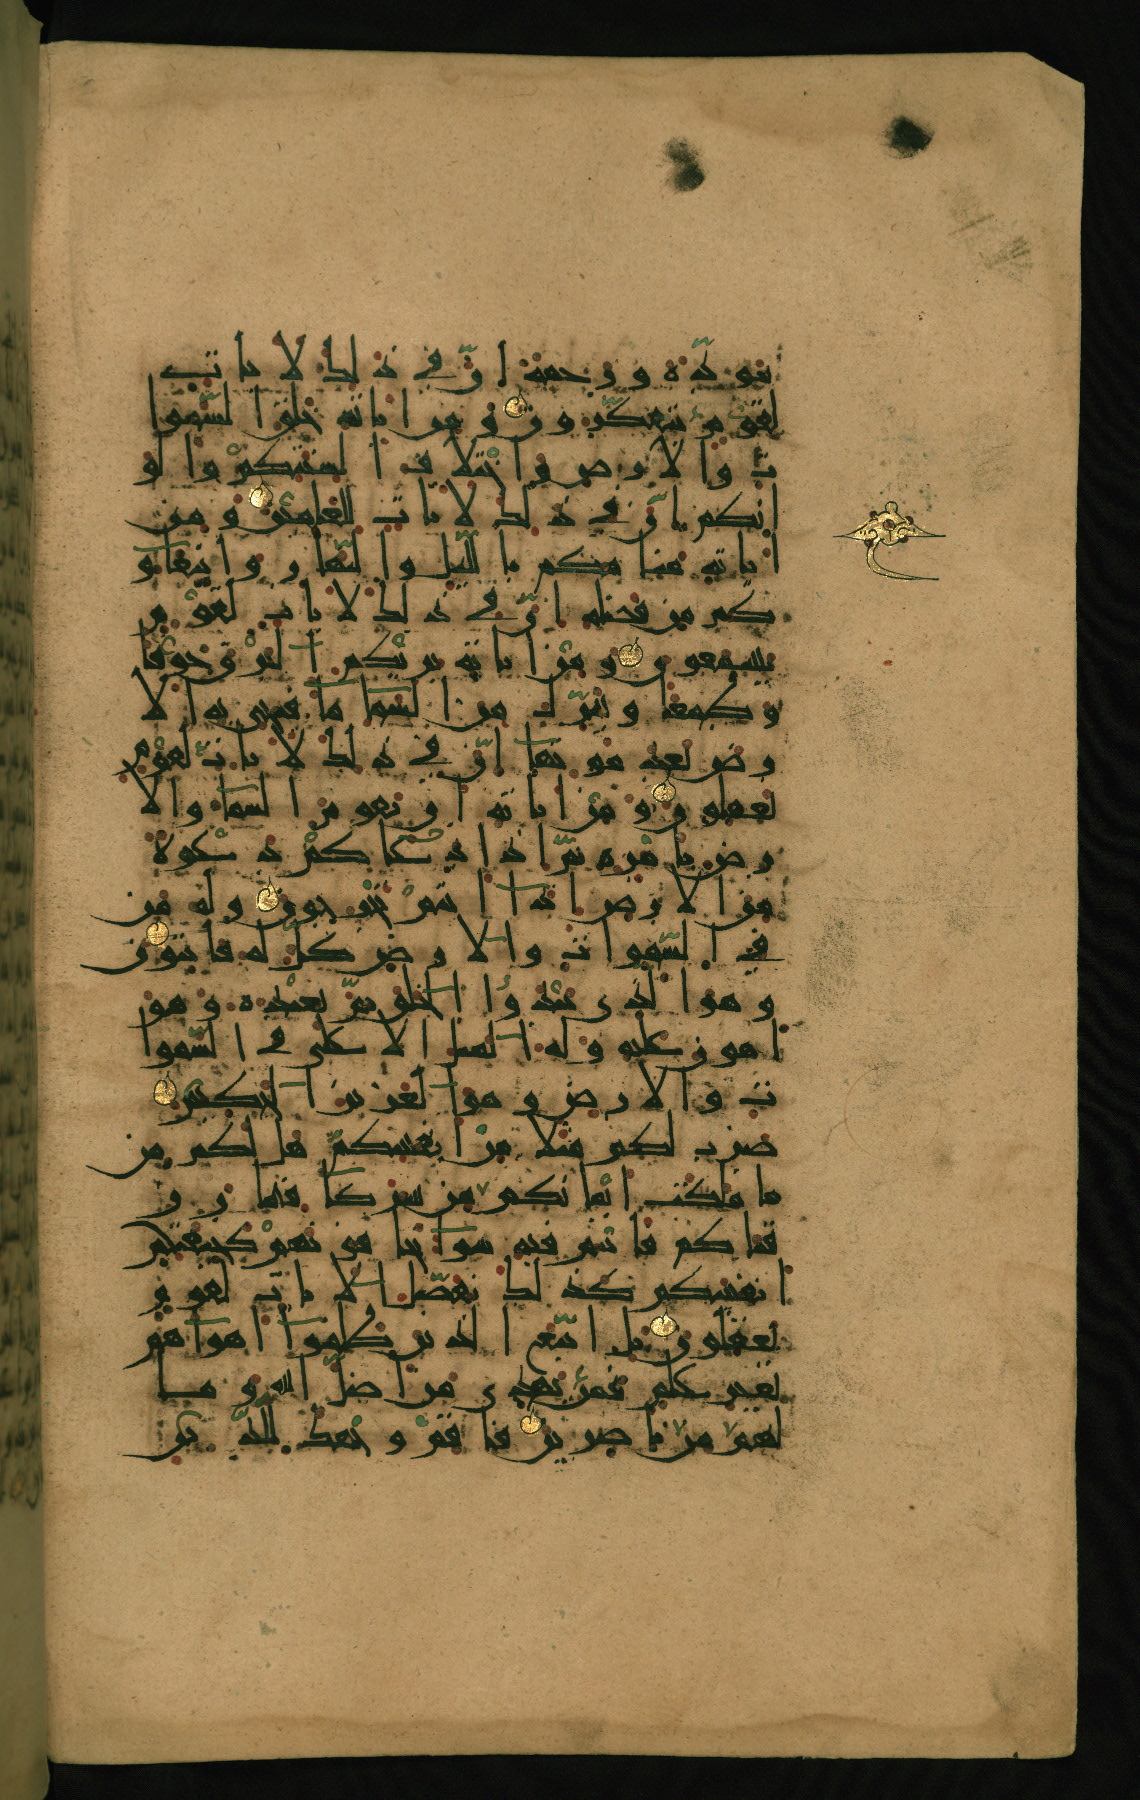 مودة ورحمة ان في ذلك لايات
لقوم يتفكرون ومن اياته خلق السموا
ت والارض واختلاف السنتكم والو
انكم ان في ذلك لايات للعالمين ومن
اياته منامكم باليل والنهار وابتغاؤ
كم من فضله ان في ذلك لايات لقوم
يسمعون ومن اياته يريكم البرق خوفا
وطمعا وينزل من السما ما فيحيي به الا
رض بعد موتها ان في ذلك لايات لقوم
يعقلون ومن اياته ان تقوم السما والا
رض بامره ثم اذا دعاكم دعوة
من الارض اذا انتم تخرجون وله من
في السموات والارض كل له قانتون
وهو الذي يبدؤا الخلق ثم يعيده وهو
اهون عليه وله المثل الاعلى في السموا
ت والارض وهو العزيز الحكيم
ضرب لكم مثلا من انفسكم هل لكم من
ما ملكت ايمانكم من شركا في ما رز
قناكم فانتم فيه سوا تخافونهم كخيفتكم
انفسكم كذلك نفصل الايات لقوم
يعقلون بل اتبع الذين ظلموا اهواهم
بغير علم فمن يهدي من اضل الله وما
لهم من ناصرين فاقم وجهك للدين